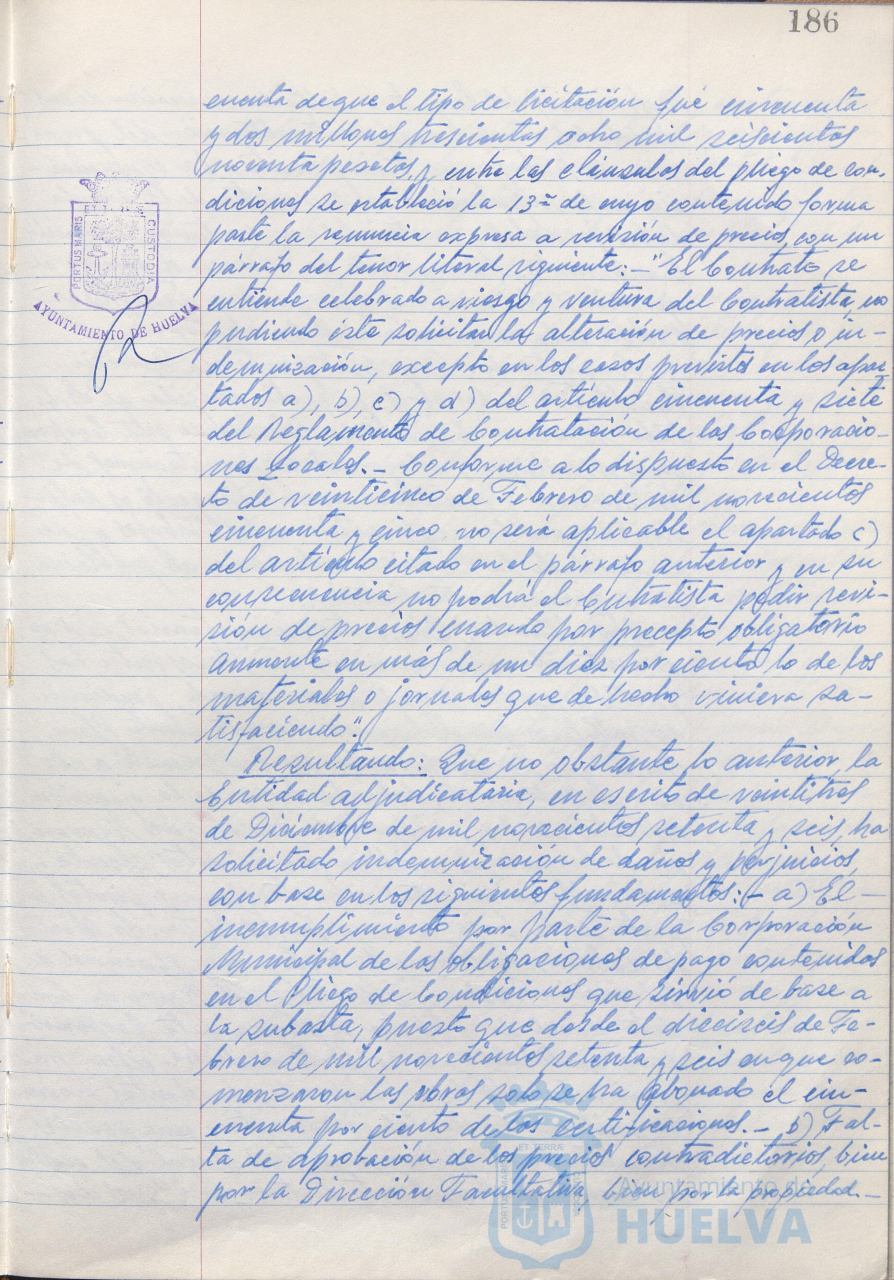 186
cuenta de que el tipo de licitación fué cincuenta
y dos millones trescientas ocho mil seiscientos
noventa pesetas, y entre las cláusulas del pliego de con-
diciones se estableció la 13ª de cuyo contenido forma
parte la renuncia expresa a revisión de precios, con un
párrafo del tenor literal siguiente: - "El Contrato se
entiende celebrado a riesgo y ventura del Contratista, no
pudiendo éste solicitar la alteración de precios o in-
demnización, excepto en los casos previstos en los apar-
tados a), b), c) y d) del artículo cincuenta y siete
del Reglamento de Contratación de las Corporacio-
nes Locales. - Conforme a lo dispuesto en el Decre-
to de veinticinco de Febrero de mil novecientos
cincuenta y cinco no será aplicable el apartado c)
del artículo citado en el párrafo anterior y en su
consecuencia no podrá el Contratista pedir revi-
sión de precios cuando por precepto obligatorio
aumente en más de un diez por ciento lo de los
materiales o jornales que de hecho viniera sa-
tisfaciendo".
Resultando: Que no obstante lo anterior, la
Entidad adjudicataria, en escrito de veintitres
de Diciembre de mil novecientos setenta y seis, ha
solicitado indemnización de daños y perjuicios,
con base en los siguientes fundamentos: - a) El -
incumplimiento por parte de la Corporación
Municipal de las obligaciones de pago contenidas
en el Pliego de Condiciones que sirvió de base a
la subasta, puesto que desde el dieciseis de Fe-
brero de mil novecientos setenta y seis en que co-
menzaron las obras solo se ha abonado el cin-
cuenta por ciento de las certificaciones. - b) Fal-
ta de aprobación de los precios contradictorios, bien
por la Dirección Facultativa, bien por la propiedad. -
PORTUS MARIS
CUSTODIA
AYUNTAMIENTO DE HUELVA
Ayuntamiento de
HUELVA